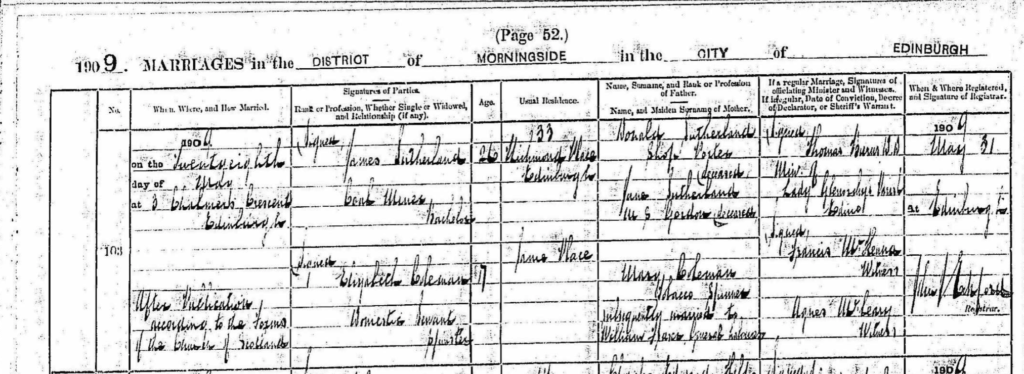 (Page 52.)
1909. MARRIAGES in the DISTRICT of MORNINGSIDE in the CITY of EDINBURGH
No.
When, Where, and How Married.
Signatures of Parties.
Rank or Profession, Whether Single or Widowed, and Relationship (if any).
Age.
Usual Residence.
Name, Surname, and Rank or Profession of Father.
Name, and Maiden Surname of Mother.
If a regular Marriage, Signatures of officiating Minister and Witnesses.
If irregular, Date of Conviction, Decree of Declarator, or Sheriff's Warrant.
When & Where Registered, and Signature of Registrar.
103
1909
on the Twentyeighth
day of May
at 3 Chalmers Crescent
Edinburgh
After Publication,
according to the Forms
of the Church of Scotland
Signed
James Sutherland
Coal Miner
Bachelor
Signed
Elizabeth Coleman
Domestic Servant
Spinster
26
17
33
Richmond Place
Edinburgh
Same Place
Donald Sutherland
Shop Porter
deceased
Jane Sutherland
M S Gordon deceased
Mary Coleman
Tobacco Spinner
subsequently married to
William General Labourer
Signed
Thomas Burns
Min. of
Lady
Edinr
Signed
Francis McKenna
Witness
Agnes
Witness
1909
May 31
at Edinburgh
Registrar.
1909